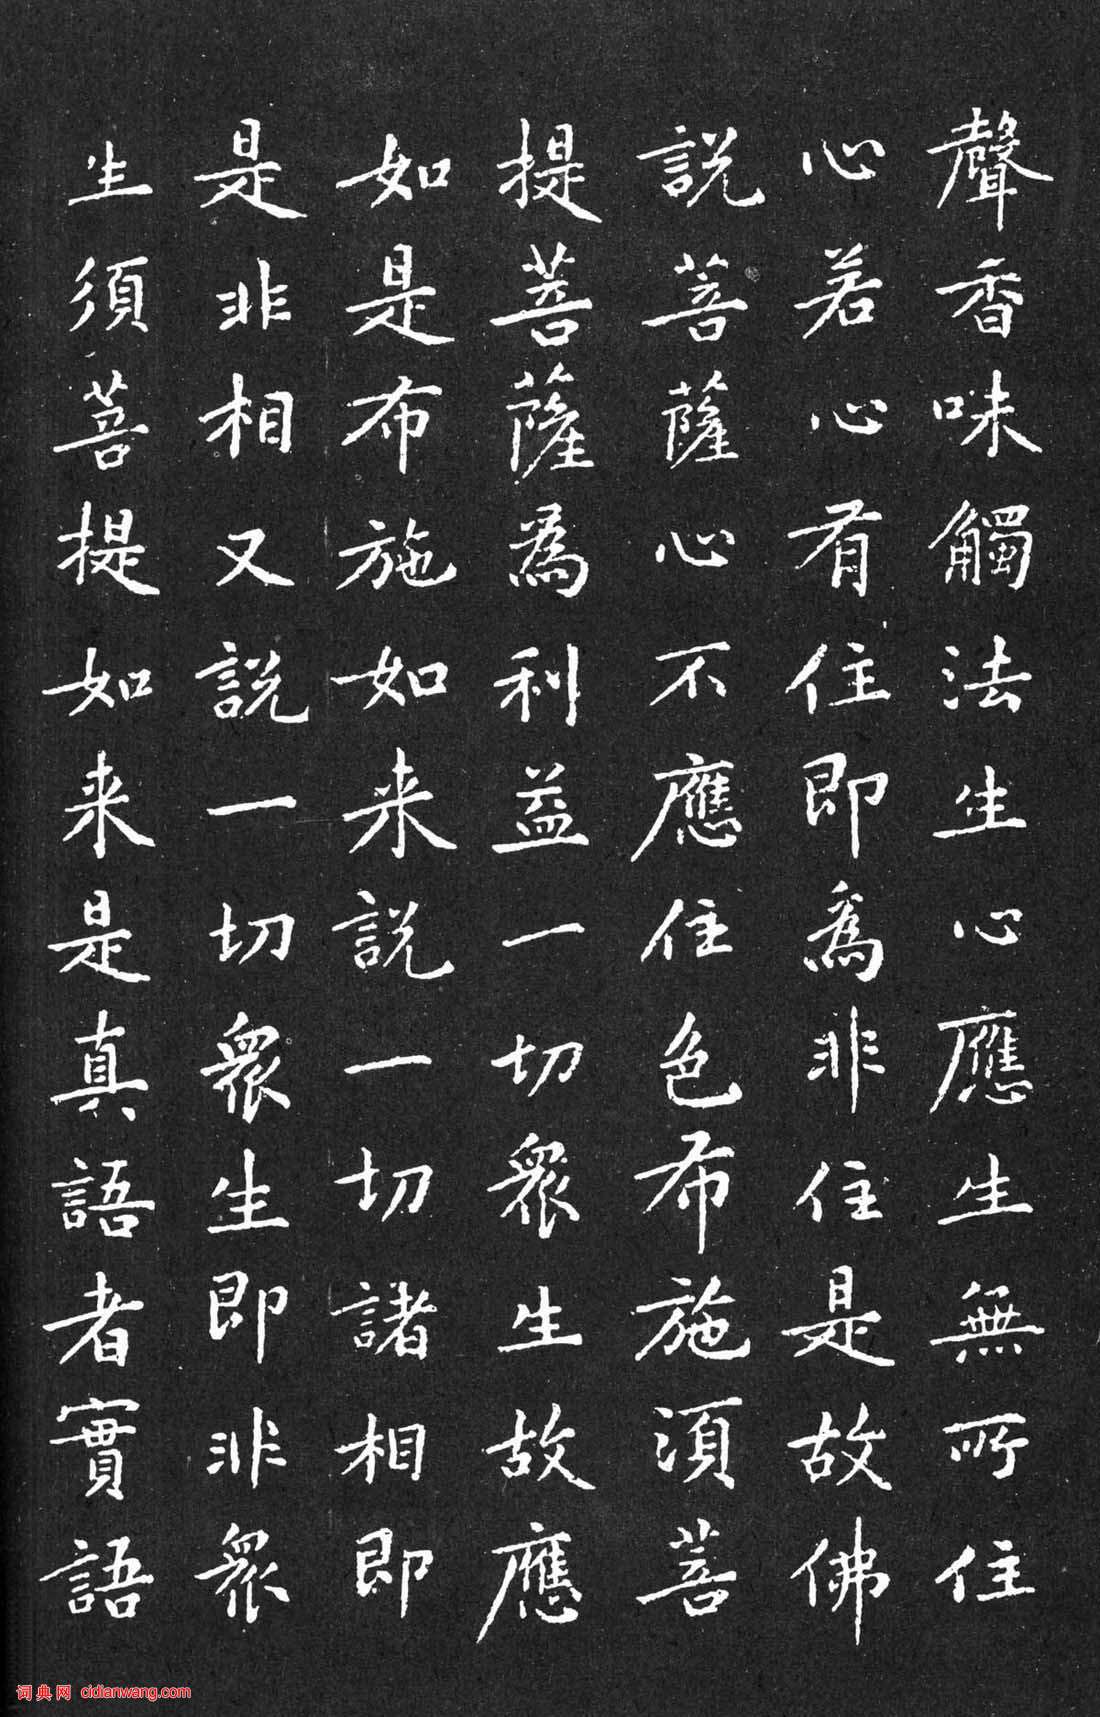 聲香味觸法生心應生無所住
心若心有住即為非住是故佛
說菩薩心不應住色布施須菩
提菩薩為利益一切眾生故應
如是布施如来說一切諸相即
是非相又說一切眾生即非眾
生須菩提如来是真語者實語
词典网 cidianwang.com